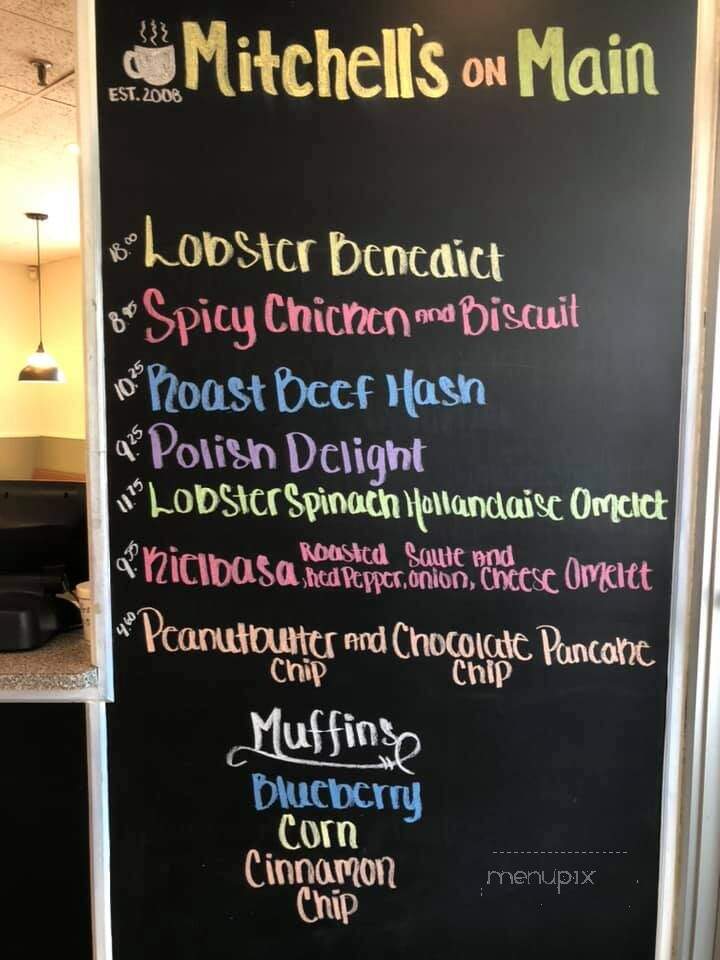 Mitchell's on Main
EST. 2008
18.00 Lobster Benedict
8.95 Spicy Chicken and Biscuit
10.25 Roast Beef Hash
9.25 Polish Delight
11.75 Lobster Spinach Hollandaise Omelet
9.55 Kielbasa, Roasted Red Pepper, Saute onion, and Cheese Omelet
4.60 Peanutbutter Chip and Chocolate Chip Pancake
Muffins
Blueberry
Corn
Cinnamon
Chip
menupix